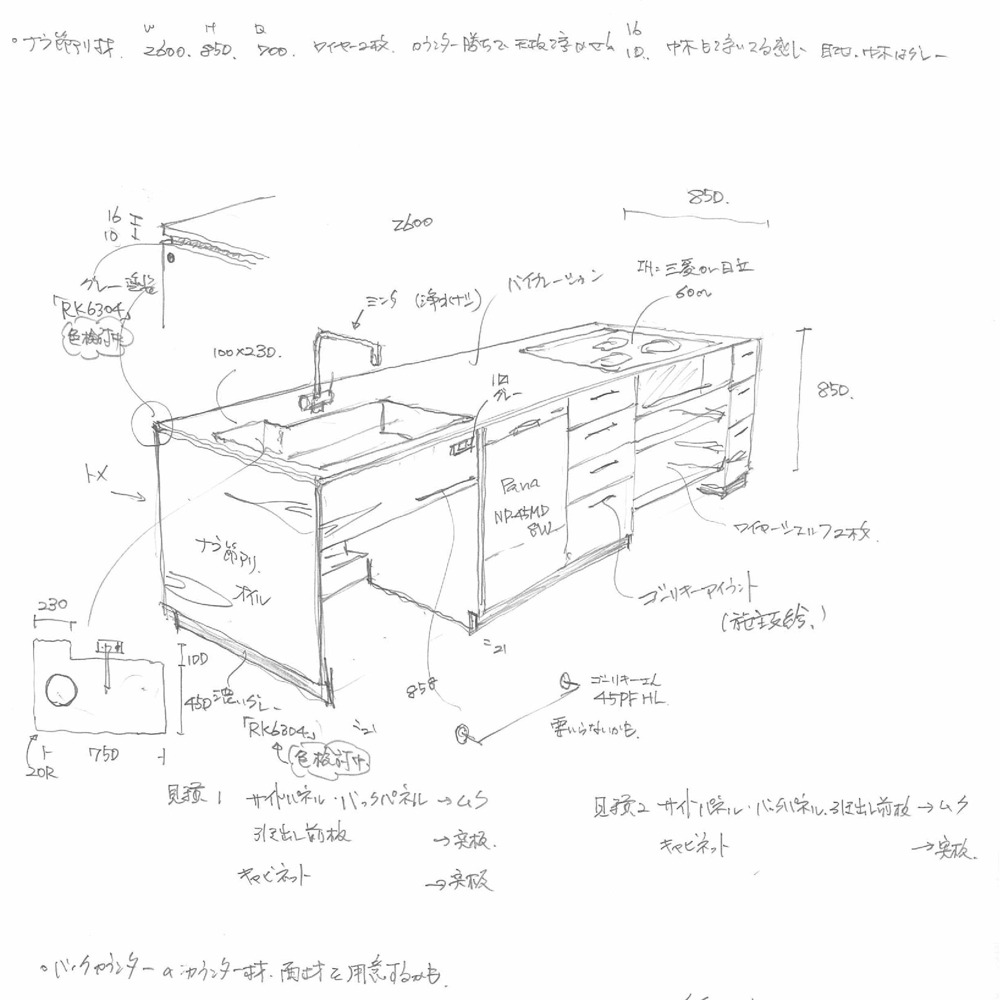 W H D
・ナラ節アリ材. 2600. 850. 700. ワイヤー2枚. カウンター勝ちで天板で浮かせる 16 10. 巾木も で浮いてる感じ 巾木はグレー
850.
16
10
2600
グレー塗装
「RK6304」
色検討中
ミンタ (浄水ナシ)
バイブレーション
IH=三菱or日立
60cm
100×230.
1口
グレー
850.
トメ
ナラ節アリ.
オイル
Pana
NP-45MD
8W
ワイヤーシェルフ2枚.
ゴーリキアイランド
(施主支給.)
230
100
450
750
20R
濃いグレー
「RK6304」
色検討中
=21
=21
858
ゴーリキさん
45PF HL
要いらないかも.
見積1 サイドパネル・バックパネル→ムク
引き出し前板 →突板.
キャビネット →突板
見積2 サイドパネル・バックパネル.引き出し前板→ムク
キャビネット →突板.
・バックカウンターのカウンター材. 面材で用意するかも.